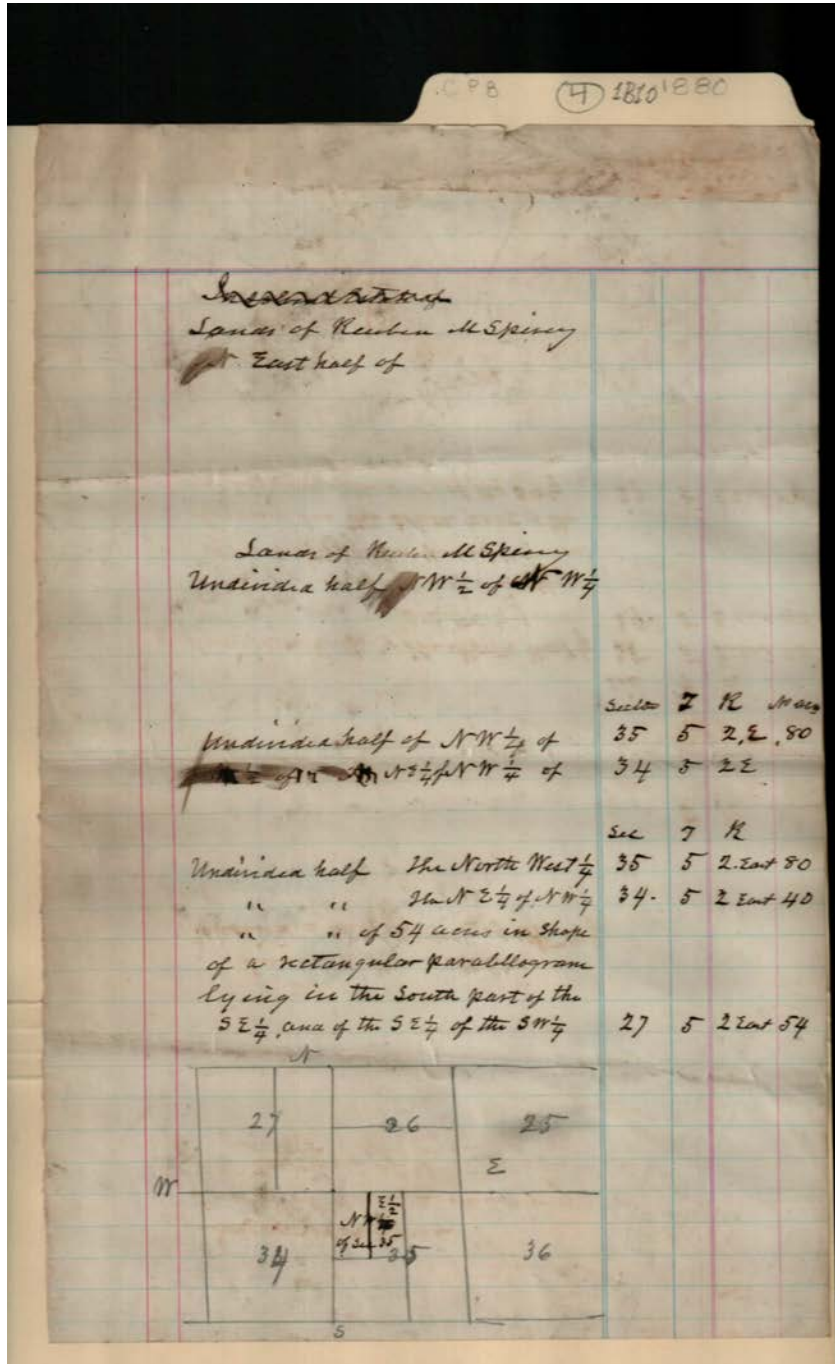 .CPB 4 1810 1880
Lands of Reuben M Spivey
N. East half of
Lands of Reuben M Spivey
Undivided half NW ½ of NW ¼
Section T R
Undivided half of NW ¼ of 35 5 2,E ,80
NE ¼ of NW ¼ of 34 5 2E
Sec T R
Undivided half The North West ¼ 35 5 2. East 80
" " The NE ¼ of NW ¼ 34. 5 2 East 40
" " of 54 acres in shape
of a rectangular parallogram
lying in the South part of the
SE ¼, and of the SE ¼ of the SW ¼ 27 5 2 East 54
N
27 26 25
E
W
E ½
NW ¼
of Sec 35
34 35 36
S